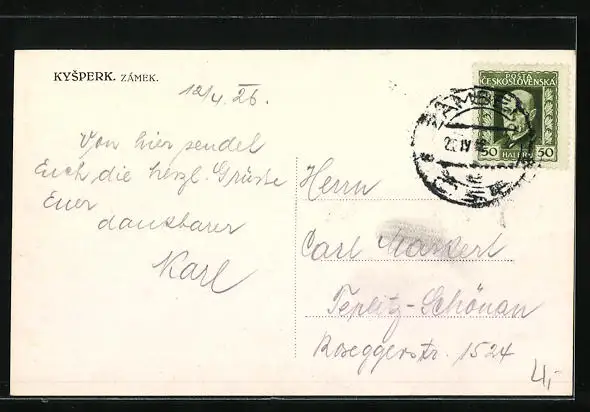 KYŠPERK. ZÁMEK.
12/4. 26.
Von hier sendet
Euch die herzl. Grüsse
Euer
dankbarer
Karl
POŠTA
ČESKOSLOVENSKÁ
50 HALÉŘŮ 50
ŽAMBE
IV
Herrn
Carl Markert
Teplitz-Schönau
Roseggerstr. 1524
4,-